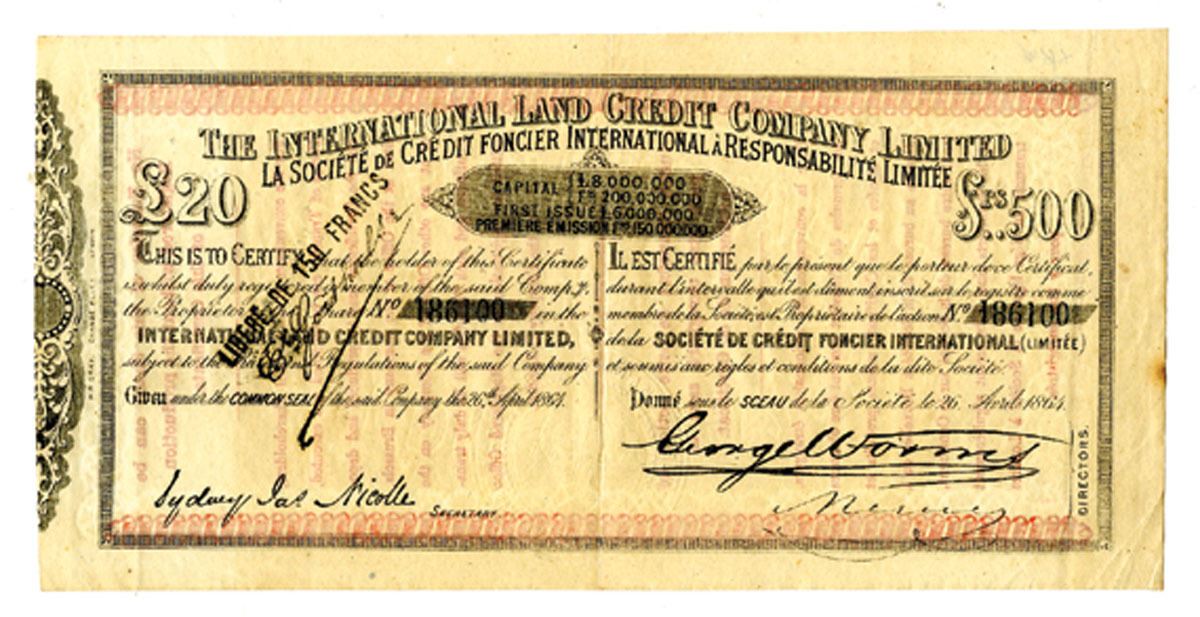 THE INTERNATIONAL LAND CREDIT COMPANY LIMITED
LA SOCIÉTÉ DE CRÉDIT FONCIER INTERNATIONAL À RESPONSABILITÉ LIMITÉE
£20
CAPITAL £8.000.000
FRS 200.000.000
FIRST ISSUE £6.000.000
PREMIÈRE EMISSION FRS 150.000.000
FRS..500
LIBÉRÉ DE 150 FRANCS
THIS IS TO CERTIFY that the holder of this Certificate
is whilst duly registered a member of the said Compy.
the Proprietor of Share No 186100 in the
INTERNATIONAL LAND CREDIT COMPANY LIMITED,
subject to the Rules and Regulations of the said Company
Given under the COMMON SEAL of the said Company the 26th April 1864.
Sydney Jas Nicolle
SECRETARY
IL EST CERTIFIÉ par le présent que le porteur de ce Certificat,
durant l'intervalle qu'il est dûment inscrit sur le registre comme
membre de la Société, est Propriétaire de l'action No 186100
de la SOCIÉTÉ DE CRÉDIT FONCIER INTERNATIONAL (LIMITÉE)
et soumis aux règles et conditions de la dite Société.
Donné sous le SCEAU de la Société le 26 Avril 1864.
George Worms
DIRECTORS.